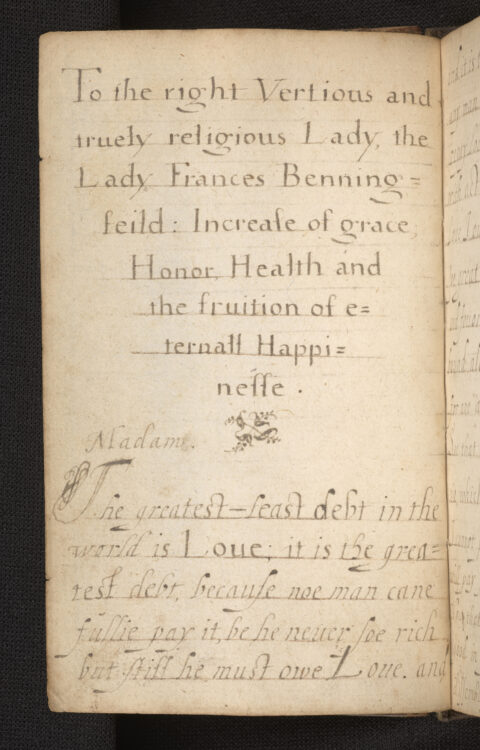 To the right Vertious and
truely religious Lady, the
Lady Frances Benning=
feild: Increase of grace,
Honor, Health and
the fruition of e=
ternall Happi=
nesse.
Madam.
The greatest-least debt in the
world is Loue; it is the grea=
test debt, because noe man cane
fullie pay it, be he neuer soe rich
but still he must owe Loue. and